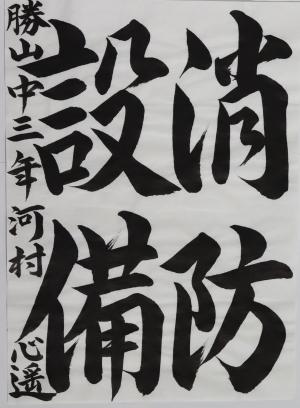 消防
設備
勝山中三年 河村 心遥